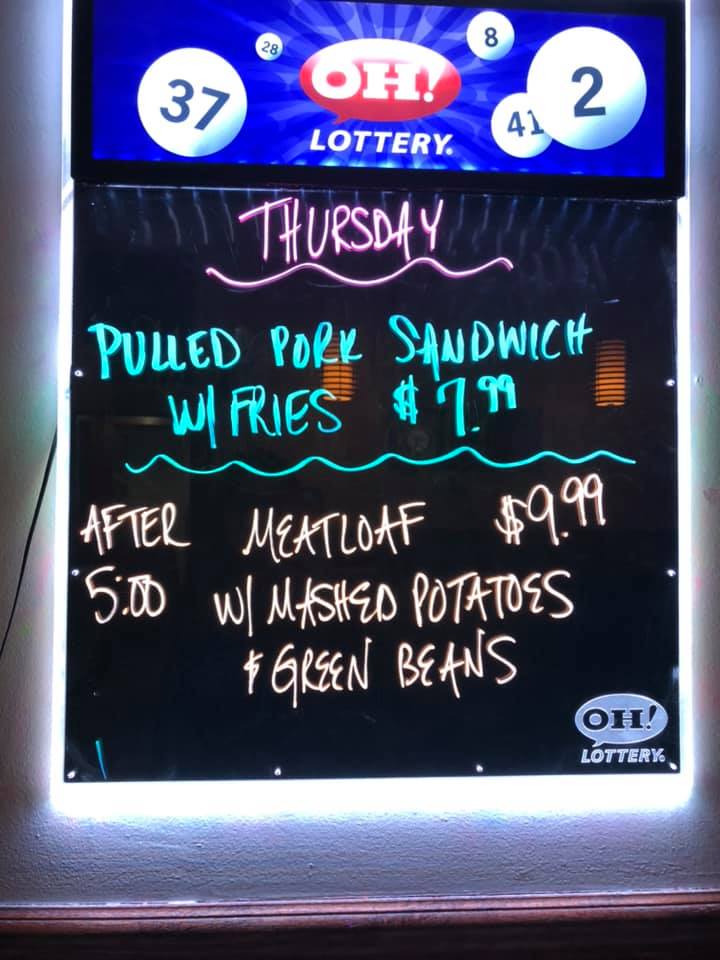 28
8
37
OH!
2
41
LOTTERY.
THURSDAY
PULLED PORK SANDWICH
W/ FRIES $7.99
AFTER MEATLOAF $9.99
5:00 W/ MASHED POTATOES
& GREEN BEANS
OH!
LOTTERY.